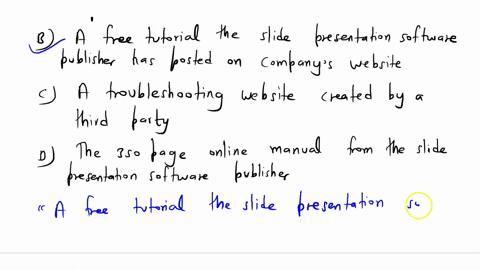 B) A free tutorial the slide presentation software
publisher has posted on Company's website
C) A troubleshooting website created by a
third party
D) The 350 page online manual from the slide
presentation software publisher
" A free tutorial the slide presentation